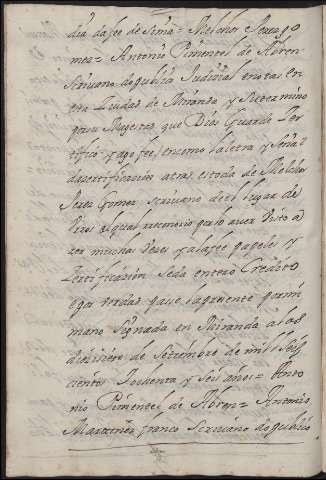 dia dafee de sima = Melchor Serez go
mez = Antonio Pimentel de Abreu
Scrivano de publico Judicial e notas en
esta de Miranda y su termino
por su Magestad que Dios Guarde Cer
tifico y ago fee, en como la letra y señal
da certificacion atras es toda de Melchor
Serez Gomez scrivano del lugar de
al qual reconosco por lo aver visto a
zer muchas veces y a la fee papeles y
Certificacion se da entero Credito
e por verdad pase la presente por mi
mano Signada en Miranda a los
diezisiete de Setiembre de mil y seis
cientos y ochenta y seis años = Anto
nio Pimentel de Abreu = Antonio
Martinez franco Scrivano de publico